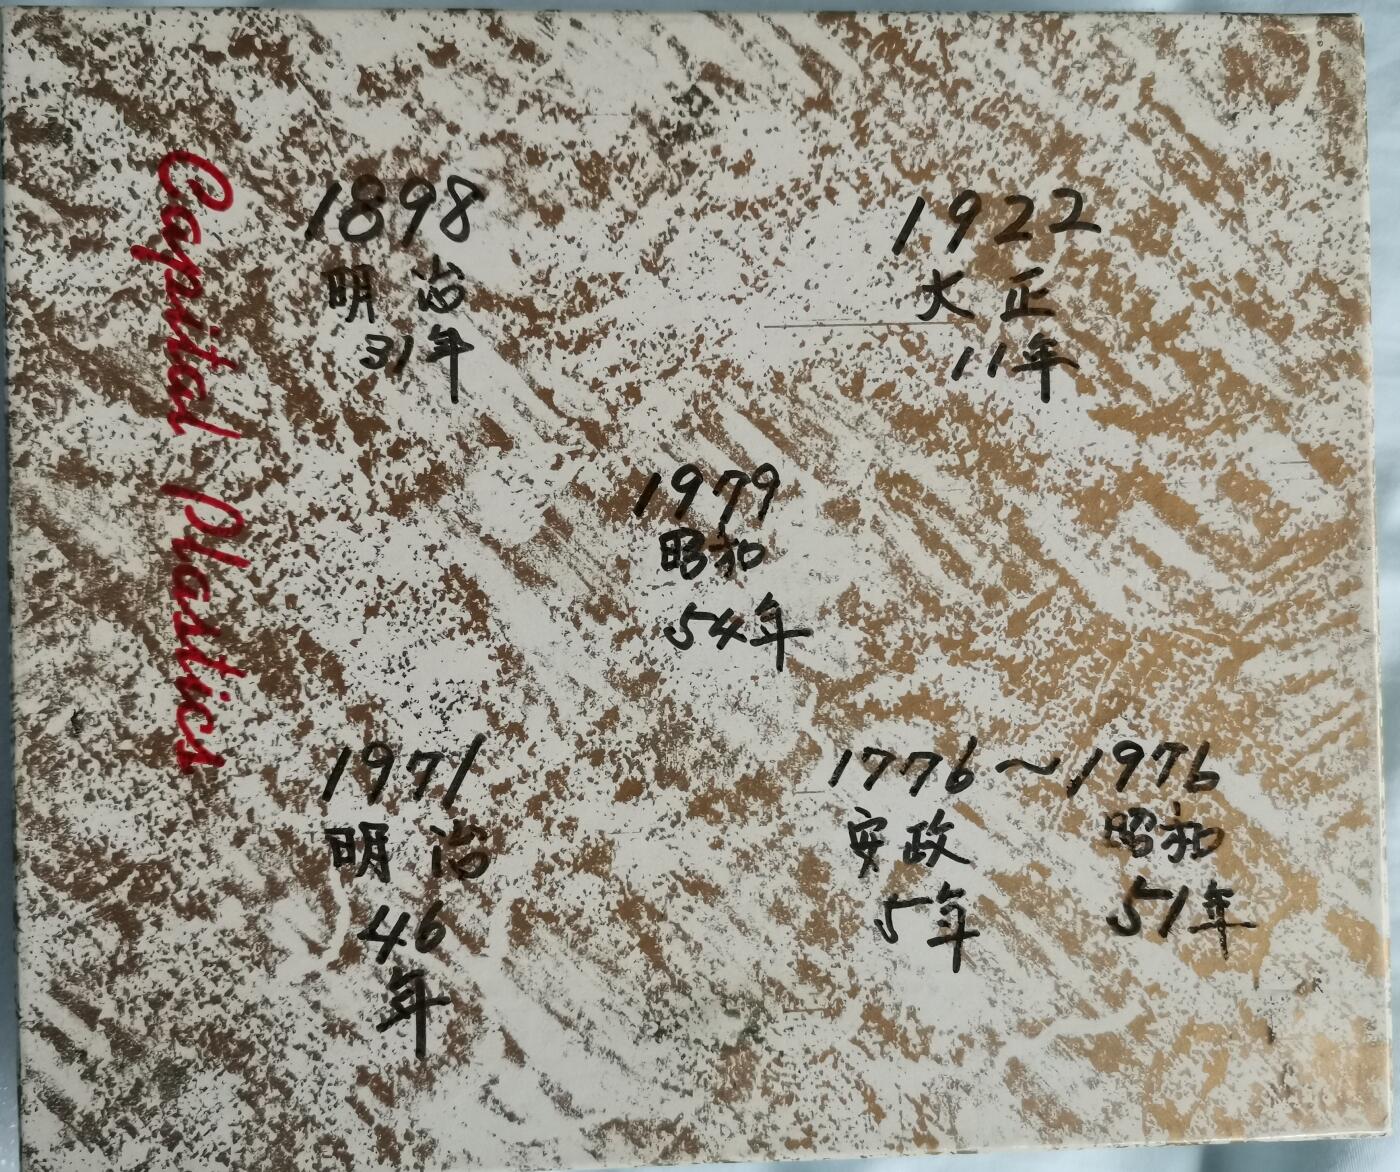 Capital Plastics
1898
明治
31年
1922
大正
11年
1979
昭和
54年
1971
明治
46
年
1776～1976
安政 昭和
5年 51年